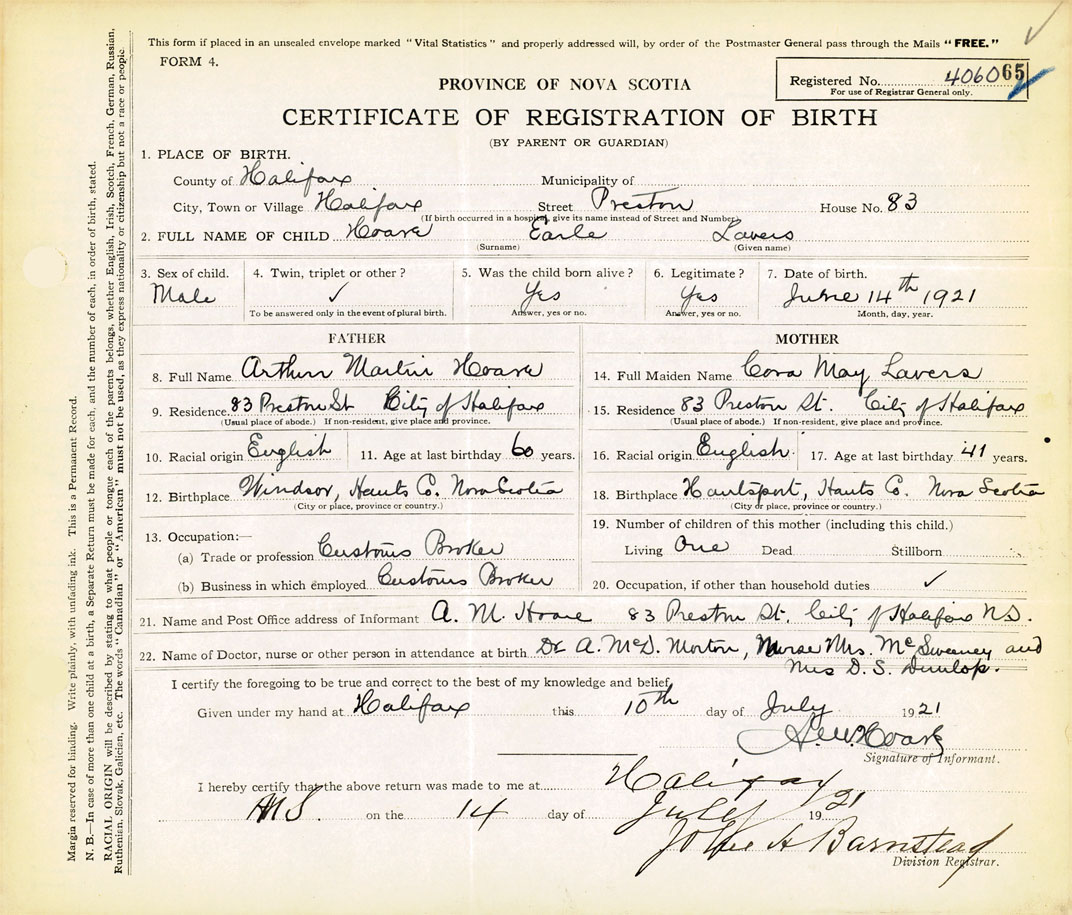 This form if placed in an unsealed envelope marked "Vital Statistics" and properly addressed will, by order of the Postmaster General pass through the Mails "FREE."
FORM 4.
PROVINCE OF NOVA SCOTIA
Registered No. 406065
For use of Registrar General only.
CERTIFICATE OF REGISTRATION OF BIRTH
(BY PARENT OR GUARDIAN)
1. PLACE OF BIRTH.
County of Halifax Municipality of
City, Town or Village Halifax Street Preston House No. 83
(If birth occurred in a hospital, give its name instead of Street and Number.)
2. FULL NAME OF CHILD Hoare Earle Lavers
(Surname) (Given name)
3. Sex of child. 4. Twin, triplet or other? 5. Was the child born alive? 6. Legitimate? 7. Date of birth.
Male ✓ Yes Yes June 14th 1921
To be answered only in the event of plural birth. Answer, yes or no. Answer, yes or no. Month, day, year.
FATHER MOTHER
8. Full Name Arthur Martin Hoare 14. Full Maiden Name Cora May Lavers
9. Residence 83 Preston St City of Halifax 15. Residence 83 Preston St. City of Halifax
(Usual place of abode.) If non-resident, give place and province. (Usual place of abode.) If non-resident, give place and province.
10. Racial origin English 11. Age at last birthday 60 years. 16. Racial origin English. 17. Age at last birthday 41 years.
12. Birthplace Windsor, Hants Co. Nova Scotia 18. Birthplace Hantsport, Hants Co. Nova Scotia
(City or place, province or country.) (City or place, province or country.)
13. Occupation:— 19. Number of children of this mother (including this child.)
(a) Trade or profession Customs Broker Living One Dead Stillborn
(b) Business in which employed Customs Broker 20. Occupation, if other than household duties ✓
21. Name and Post Office address of Informant A. M. Hoare 83 Preston St. City of Halifax N.S.
22. Name of Doctor, nurse or other person in attendance at birth Dr A. McD. Morton, Nurse Mrs. McSweeney and
Mrs D. S. Dunlop.
I certify the foregoing to be true and correct to the best of my knowledge and belief.
Given under my hand at Halifax this 10th day of July 1921
Hoare
Signature of Informant.
I hereby certify that the above return was made to me at Halifax
N.S. on the 14 day of July 1921
John H Barnstead
Division Registrar.
Margin reserved for binding. Write plainly, with unfading ink. This is a Permanent Record.
N. B.—In case of more than one child at a birth, a Separate Return must be made for each, and the number of each, in order of birth, stated.
RACIAL ORIGIN will be described by stating to what people or tongue each of the parents belongs, whether English, Irish, Scotch, French, German, Russian,
Ruthenian, Slovak, Galician, etc. The words "Canadian" or "American" must not be used, as they express nationality or citizenship but not a race or people.